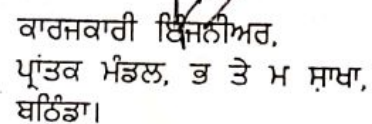 ਕਾਰਜਕਾਰੀ ਇੰਜਨੀਅਰ,
ਪ੍ਰਾਂਤਕ ਮੰਡਲ, ਭ ਤੇ ਮ ਸ਼ਾਖਾ,
ਬਠਿੰਡਾ।